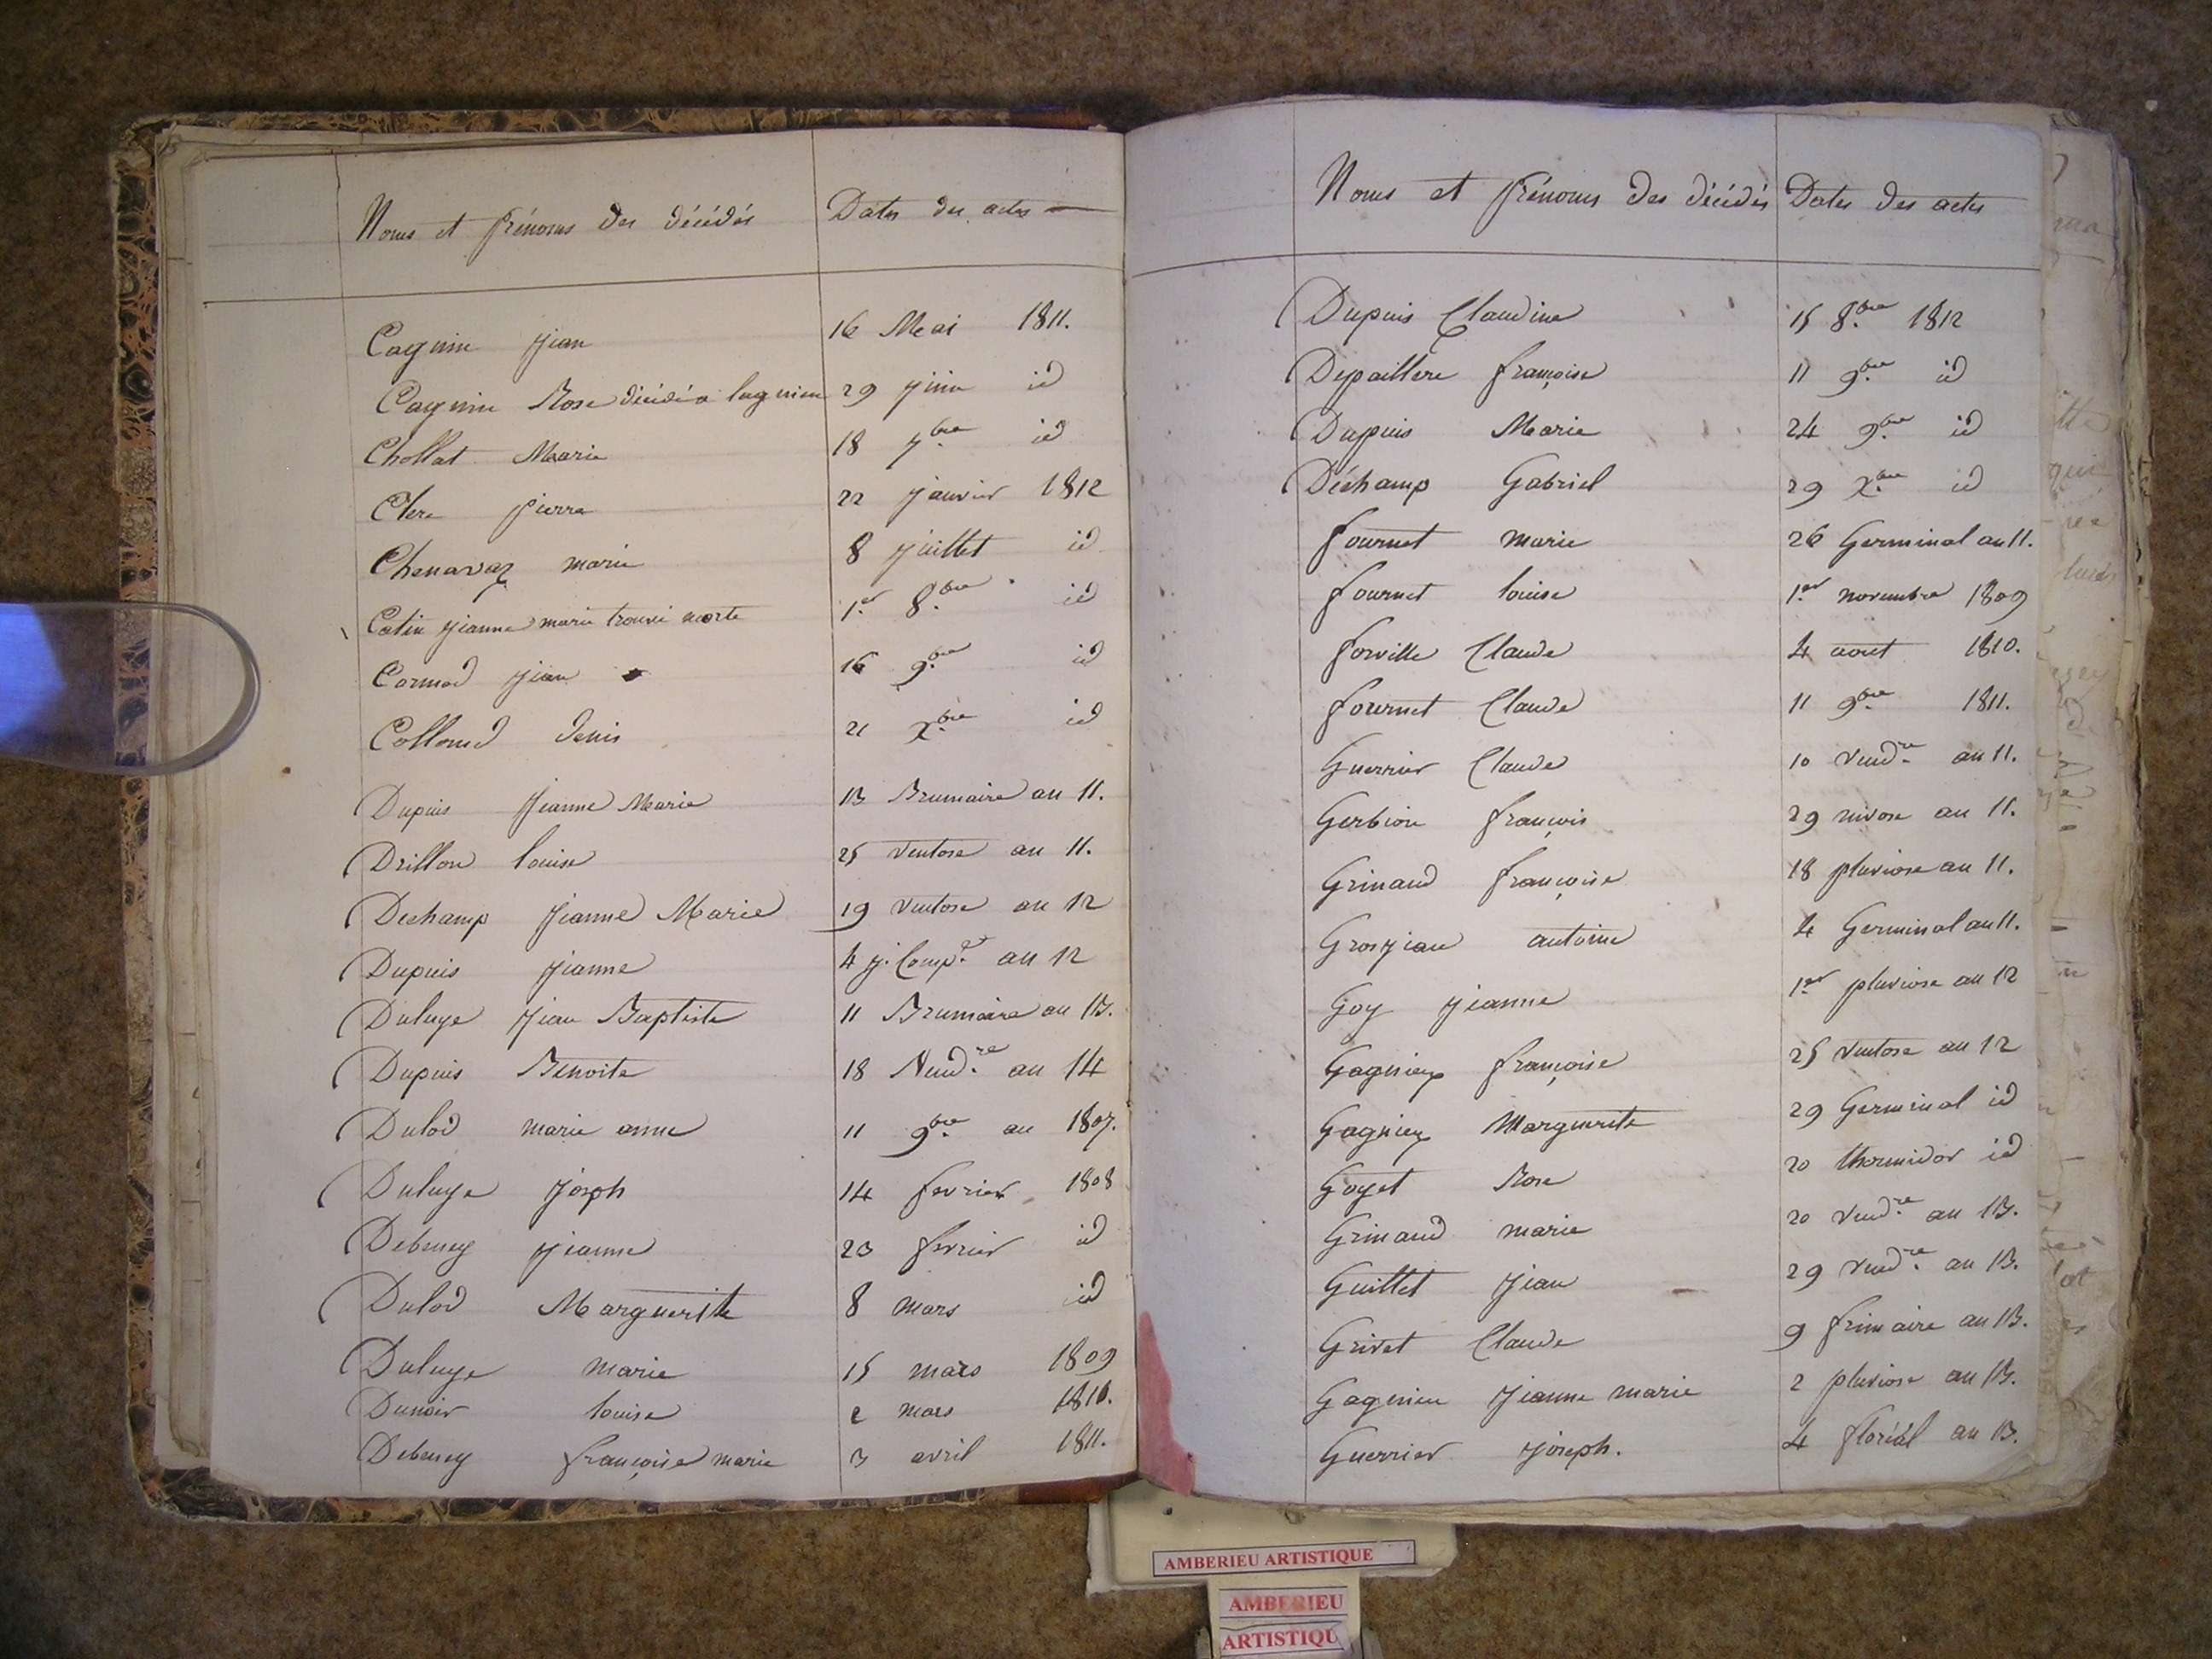 Noms et prénoms des décédés Dates des actes
Cagnin jean 16 Mai 1811.
Cagnin Rose décédé a lagnieu 29 juin id
Chollat Marie 18 7.bre id
Clerc pierre 22 janvier 1812
Chenavaz marie 8 juillet id
Catin jeanne marie trouvé morte 1.er 8.bre id
Cormod jean 16 9.bre id
Collomd denis 21 X.bre id
Dupuis Jeanne Marie 13 Brumaire an 11.
Drillon louise 25 Ventose an 11.
Dechamp Jeanne Marie 19 Ventose an 12
Dupuis jeanne 4 j. Comp.re an 12
Duluye jean Baptiste 11 Brumaire an 13.
Dupuis Benoite 18 Vend.re an 14
Dulod marie anne 11 9.bre an 1807.
Duluye joseph 14 fevrier 1808
Debeney jeanne 23 fevrier id
Dulod Marguerite 8 mars id
Duluye marie 15 mars 1809
Dunoir louise 2 mars 1810.
Debeney françoise marie 3 avril 1811.
Noms et prénoms des décédés Dates des actes
Dupuis Claudine 15 8.bre 1812
Depaillere françoise 11 9.bre id
Dupuis Marie 24 9.bre id
Déchamp Gabriel 29 X.bre id
fournet marie 26 Germinal an 11.
fournet louise 1.er novembre 1809
forville Claude 4 aout 1810.
fournet Claude 11 9.bre 1811.
Guerrier Claude 10 Vend.re an 11.
Gerbion françois 29 nivose an 11.
Grinand françoise 18 pluviose an 11.
Grosjean antoine 4 Germinal an 11.
Goy jeanne 1.er pluviose an 12
Gagnieux françoise 25 Ventose an 12
Gagnieux Marguerite 29 Germinal id
Goyet Rose 20 thermidor id
Grinand marie 20 Vend.re an 13.
Guillet jean 29 Vend.re an 13.
Grivet Claude 9 frimaire an 13.
Gagnieu jeanne marie 2 pluviose an 13.
Guerrier joseph. 4 floréal an 13.
AMBERIEU ARTISTIQUE
AMBERIEU
ARTISTIQU